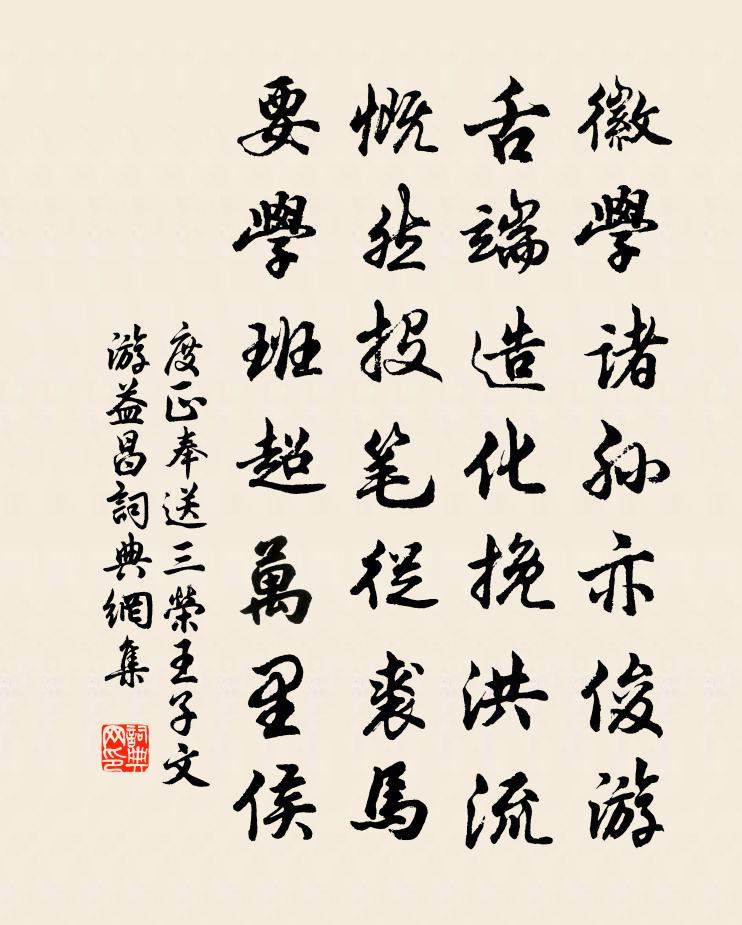 徽學諸孫亦俊游
舌端造化挽洪流
慨然投笔從裘馬
要學班超萬里侯
度正奉送三榮王子文
游益昌詞典網集
詞典网印